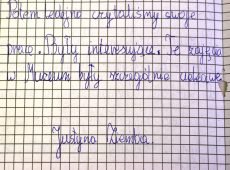 Potem każdy czytaliśmy swoje
prace. Były interesujące. Te zajęcia
w Muzeum były szczególnie ciekawe.
Justyna Ziemba